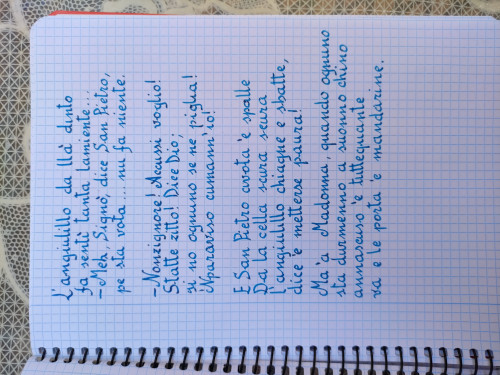 L'angiulillo da llà dinto
fa sentì tanta lamiente...
- Meh, Signò, dice San Pietro,
pe sta vota... nu fa niente.
- Nonzignore! Accussì voglio!
Statte zitto! Dice Dio,
si no ognuno se ne piglia!
'Nparaviso cumann'io!
E San Pietro avota 'e spalle
Da la cella scura scura
l'angiulillo chiagne e sbatte,
dice 'e metterse paura!
Ma 'a Madonna, quando ognuno
sta durmenno a suonno chino
annascuso 'e tuttequante
va e le porta 'e mandarine.